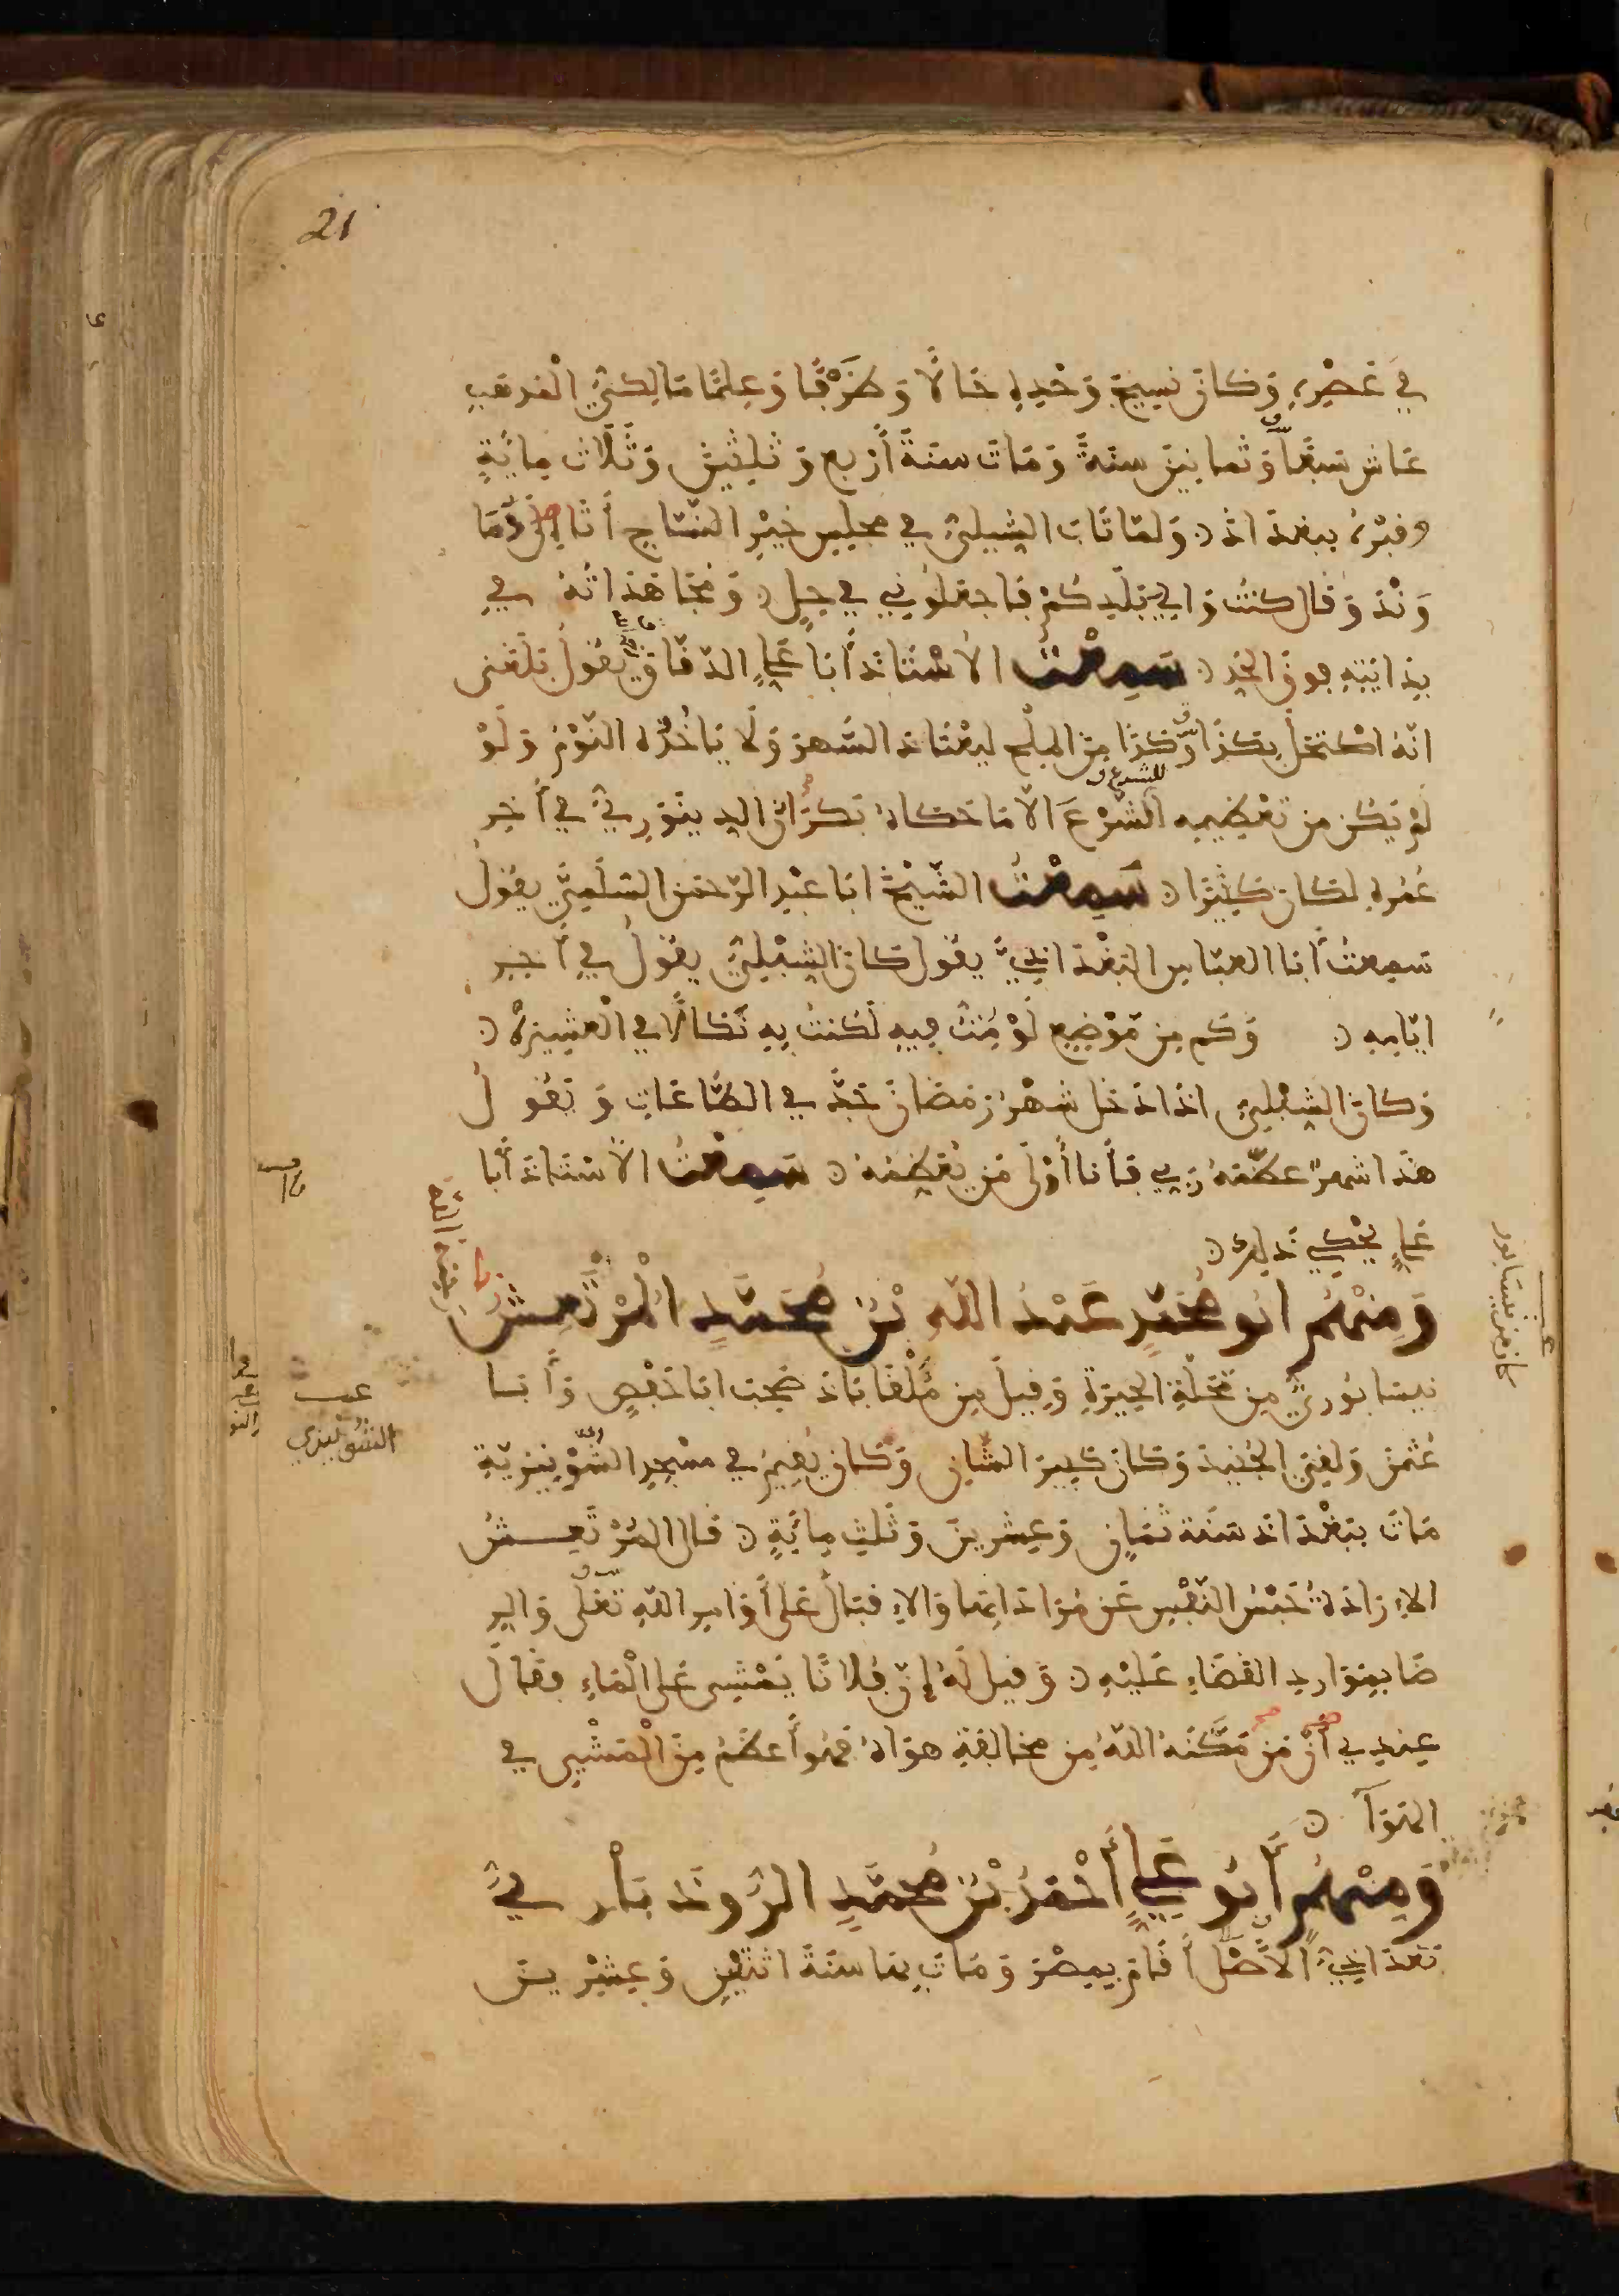 21
في عَصْرِهِ وَكَانَ نسِيجَ وَحْدِهِ حَالًا وَظَرْفًا وَعِلمًا مَالِكيُّ الْمَذهَبِ
عَاش سَبْعًا وَثمانينَ سنةً وَمَات سنةَ أَرْبع وَثلثينَ وَثَلَاث مِائَةٍ
وقبْرُهُ ببغدَاذ وَلمّا تَابَ الشبليُّ في مجلِسِ خَيْرِ النّسّاج أَتَا
دَنْبَاوَنْدَ وَقَال كنتُ وَالِي بَلَدِكُمْ فَاجعَلُونِي في حِلٍ وَمُجَاهَدَاتُهُ في
بِدَايَتِهِ فوقَ الحَدِ سَمِعْتُ الأُسْتَاذ أَبَا عَلِيٍ الدّقّاق يَقُولُ بَلَغَنى
انّهُ اكْتَحَلَ بِكذَا وَكذَا مِنَ المِلْحِ ليَعْتَادَ السَّهَرَ وَلَا يَاخُذَهُ النَّوْمُ وَلَوْ
للشرع
لَمْ يَكن من تَعْظِيمِهِ الشَّرْعَ الّا مَا حَكاهُ بَكْرَانُ الدِينَوَرِيُّ في أَخِرِ
عُمُرِهِ لكَانَ كَثِيرًا سَمِعْتُ الشّيْخَ ابَا عَبْدِ الرّحمٰن السُّلَمِيَّ يقُولُ
سَمِعتُ أَبَا العبّاسِ البَغْدَاذِيَّ يقُول كانَ الشِبْليُّ يقُولُ في أَخِرِ
ايّامِهِ وَكم مِن مَوْضِعٍ لَوْ مُتُّ فِيهِ لَكُنتُ بِهِ نَكَالًا في الْعَشِيرَهْ
وَكانَ الشِبْليُّ اذَا دَخَل شَهْرُ رَمَضَانَ جَدَّ في الطّاعَاتِ وَيَقُولُ
هَذَا شهرٌ عَظَّمَهُ رَبِي فَأَنَا أَوْلَى مَن يُعَظِمُهُ سَمِعْتُ الأُسْتَاذ أَبَا
عَلِيٍ يَحْكِي ذلِكَ
وَمِنْهُم ابُو مُحَمّدٍ عَبْدُ اللّهِ بْنُ مُحَمَّدٍ الْمُرْتَعِشُ
نيسَابُوريٌّ مِن مَحَلّةِ الحِيرَةِ وَقِيلَ مِن مُلْقَابَاذ صَحِبَ ابَا حَفْصٍ وَأَبَا
عُثمٰنَ وَلقِيَ الجُنَيدَ وَكَانَ كَبِيرَ الشّأنِ وَكَانَ يُقِيمُ في مسْجِدِ الشُّوْنِيزِيّةِ
مَاتَ بِبَغْدَاذ سَنَة ثَمَانٍ وَعِشرِينَ وَثَلٰثِ مِائَةٍ قَالَ المُرْتَعِشُ
الإرَادَةُ حَبْسُ النّفْسِ عَن مُرَادَاتِهَا وَالاِقبَالُ عَلى أَوَامِرِ اللّهِ تَعَلى وَالرِ
ضَا بِمَوَارِدِ القَضَاءِ عَلَيْهِ وَقيل لَهُ إنّ فُلانًا يَمْشِى عَلى الْمَاءِ فَقَالَ
عِندِي أَنّ مَن مَكَّنَهُ اللّهُ مِن مخَالَفَةِ هَوَاهُ فَهُوَ أَعظَمُ مِنَ الْمَشْيِ في
الهَوَآ
وَمِنْهُم أَبُو عَلِيٍ أَحْمَدُ بْنُ مُحَمَّدٍ الرُّوذَبَارِيُّ
بَغدَاذِيُّ الأَصْلِ أَقَامَ بِمِصْرَ وَمَاتَ بِهَا سَنَةَ اثنَتَيْنِ وَعِشْرِينَ
عــ
الشونيزي
كان من نيسابور